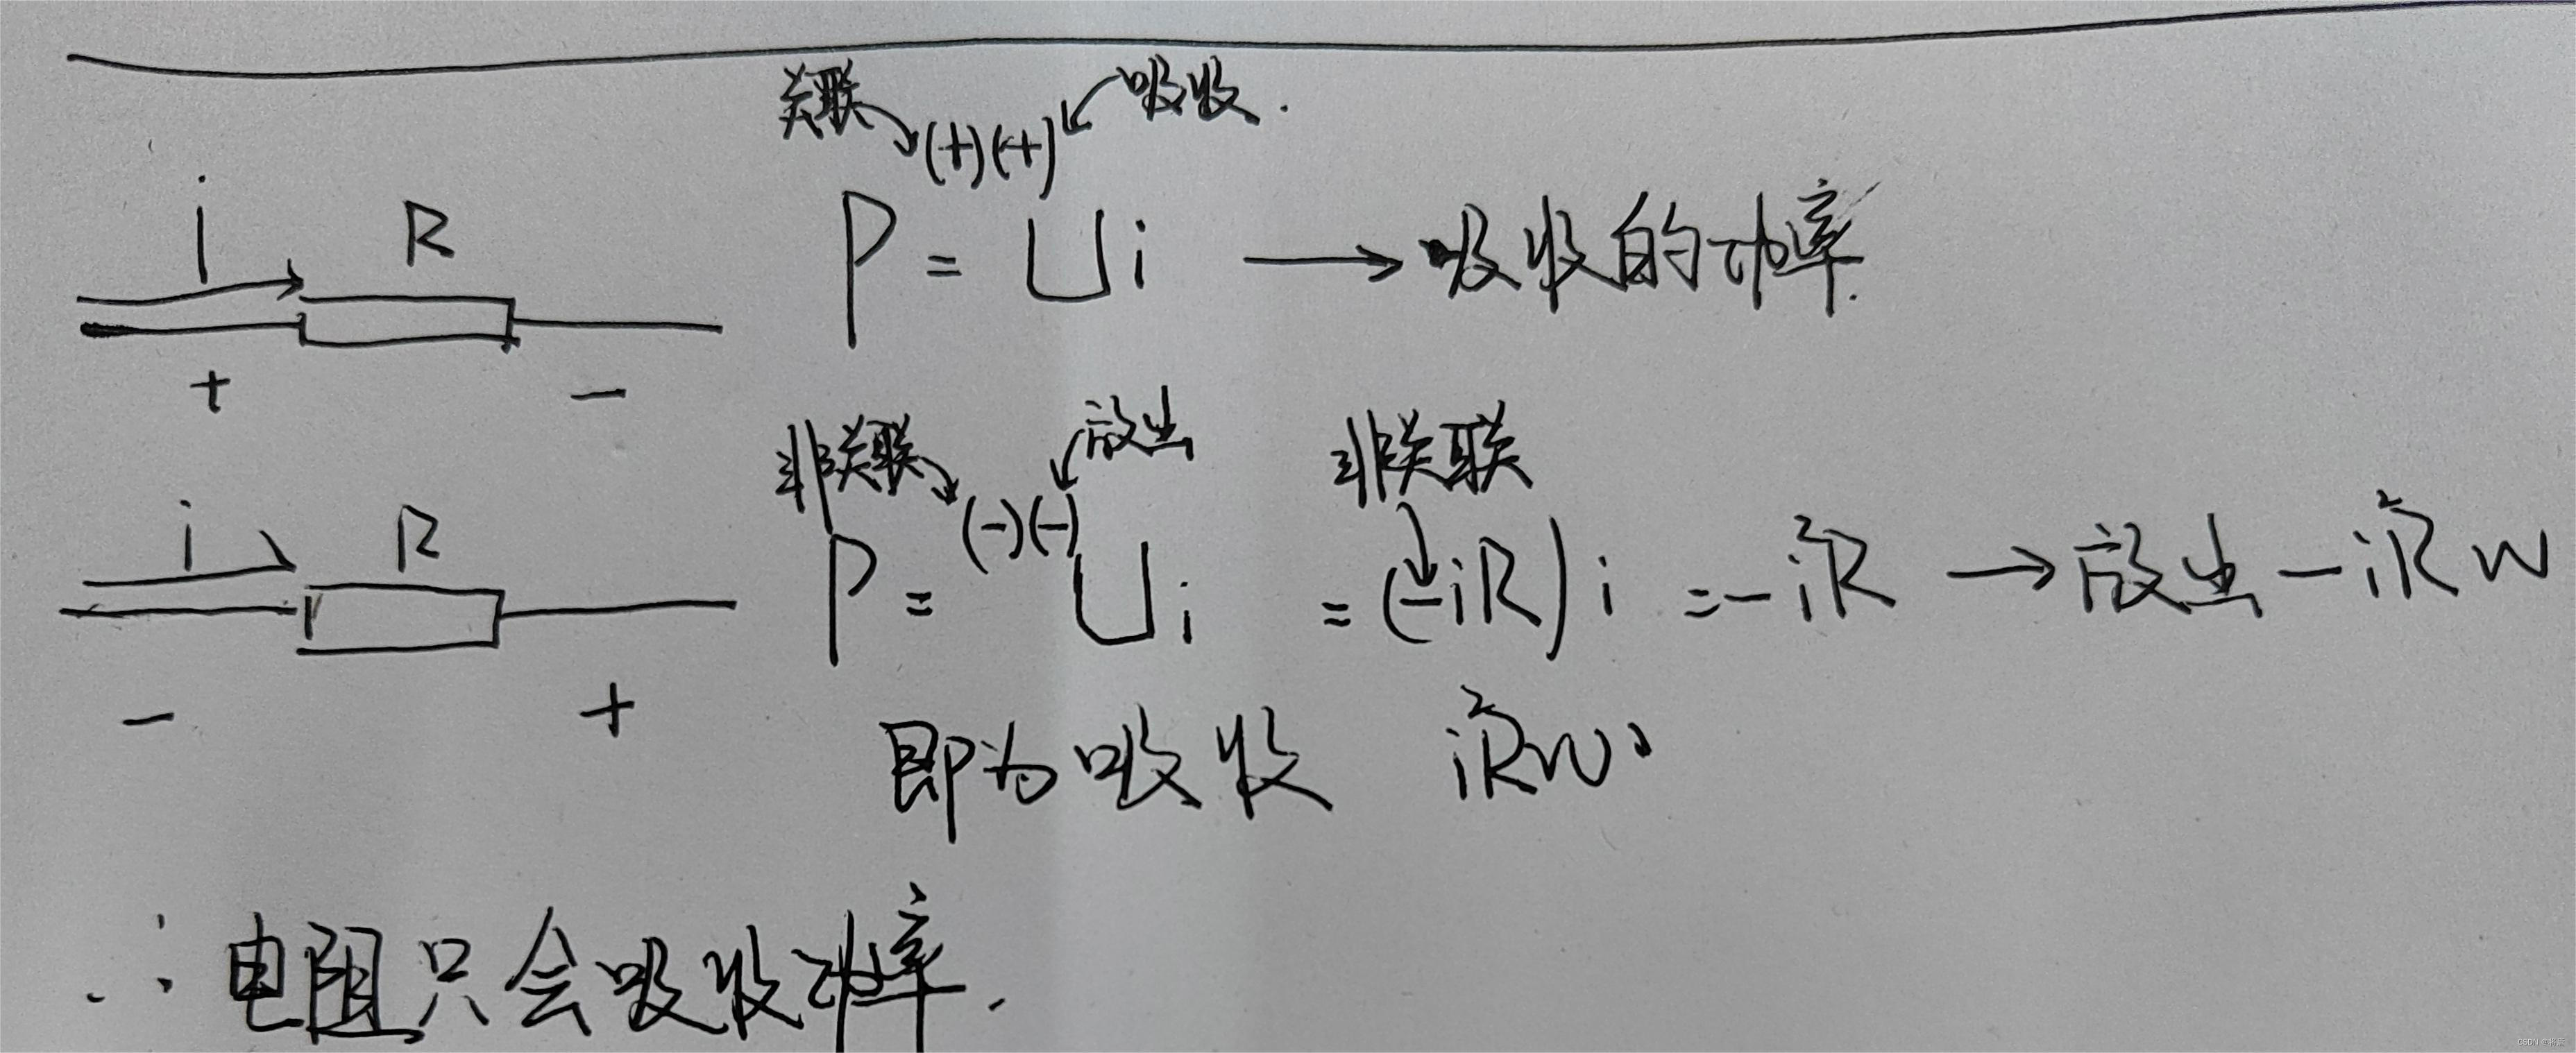 关联 吸收.
(+)(+)
i R P = Ui → 吸收的功率.
+ -
非关联 放出 非关联
(-)(-)
i R P = Ui = (-iR)i = -i²R → 放出 -i²R W
- +
即为吸收 i²R W。
∴ 电阻只会吸收功率.